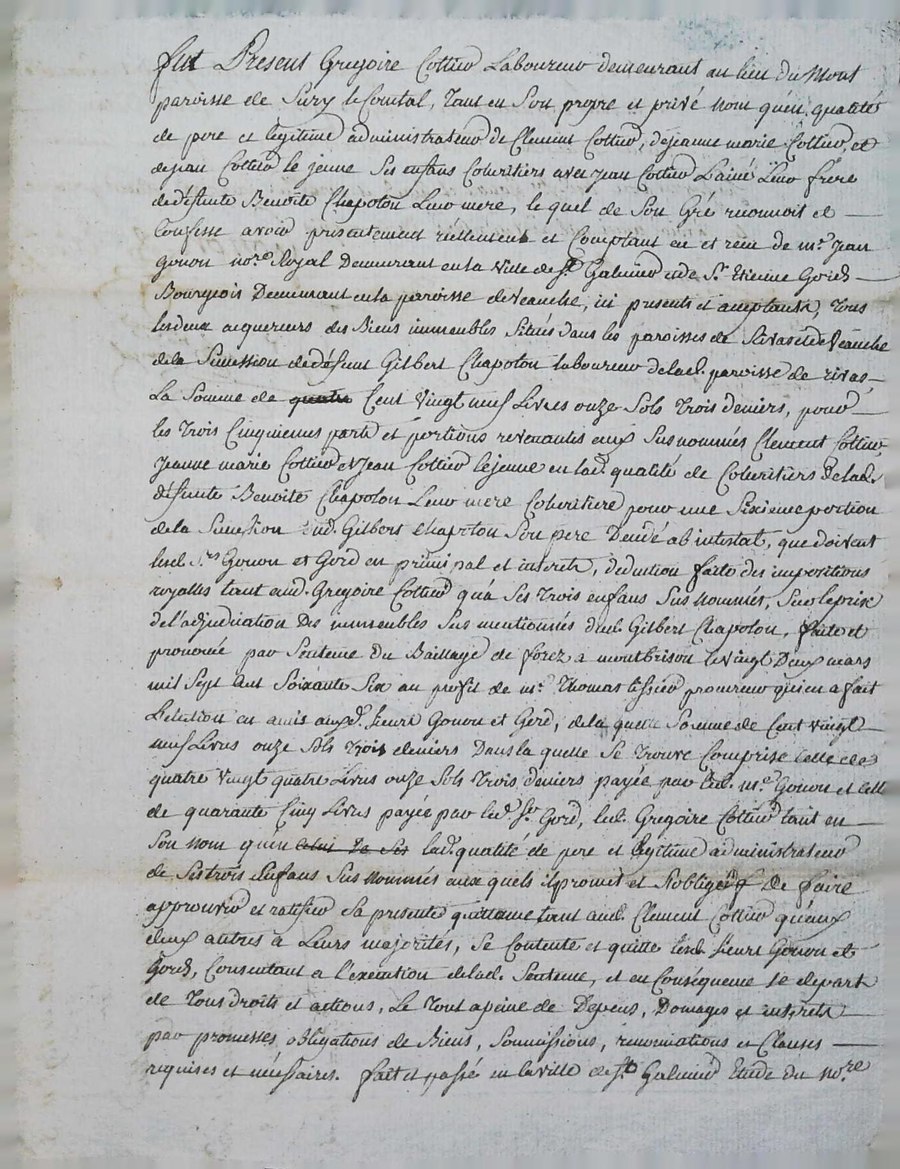 fut Present Gregoire Cottier Laboureur demeurant au lieu du Mont
paroisse de Sury le Comtal, tant en Son propre et privé nom qu'en qualité
de pere et legitime administrateur de Clement Cottier, de jeanne marie Cottier, et
de jean Cottier le jeune Ses enfans Coheritiers avec jean Cottier L'ainé Leur frere
de défunte Benoite Chapolon Leur mere, le quel de Son Gré reconnoit et
Confesse avoir présentement réellement et Comptant eu et recu de me. Jean
Gonon nore. Royal Demeurant en la ville de St. Galmier et de Sr. Etienne Gord
Bourgeois Demeurant en la paroisse de veauche, ici presents et acceptants, Tous
les deux acquereurs des Biens immeubles Situés dans les paroisses de Rivas et de Veauche
de la Succession de défunt Gilbert Chapolon laboureur de lad. paroisse de rivas
La Somme de quatre Cent vingt neuf Livres onze Sols Trois deniers, pour
les Trois Cinquiemes parts et portions revenantes aux Susnommés Clement Cottier,
Jeanne marie Cottier et Jean Cottier le jeune en lad. qualité de Coheritiers de lad.
défunte Benoite Chapolon Leur mere Coheritiere pour une Sixieme portion
de la Succession dud. Gilbert Chapolon Son pere Decédé ab intestat, que doivent
lesd. Srs Gonon et Gord en principal et interets, deduction faite des impositions
royalles tant aud. Gregoire Cottier qu'à Ses Trois enfans Sus nommés, Sur le prix
de l'adjudication Des immeubles Sus mentionnés dud. Gilbert Chapolon, faite et
prononcé par Sentence du Baillage de forez a montbrison le vingt Deux mars
mil Sept Cent Soixante Six au profit de me. Thomas tissier procureur qui en a fait
L'election en amis auxd. Sieurs Gonon et Gord, de la quelle Somme de Cent vingt
neuf Livres onze Sols Trois deniers Dans la quelle Se Trouve Comprise Celle de
quatre vingt quatre Livres onze Sols Trois deniers payée par led. me. Gonon et Celle
de quarante Cinq Livres payée par led. Sr. Gord, led. Gregoire Cottier tant en
Son nom qu'en Celui de Ses lad. qualité de pere et Legitime administrateur
de Ses trois Enfans Sus nommés aux quels il promet et S'oblige de faire
approuver et ratifier la presente quittance tant aud. Clement Cottier qu'aux
deux autres à Leurs majorités, Se Contente et quitte lesd. Sieurs Gonon et
Gord, Consentant a l'execution de lad. Sentence, et en Conséquence Se depart
de Tous droits et actions, Le Tout a peine de Depens, Domages et interets
par promesses, obligations de Biens, Soumissions, renonciations et Clauses
requises et nécessaires. fait et passé en la ville de St. Galmier Etude du nore